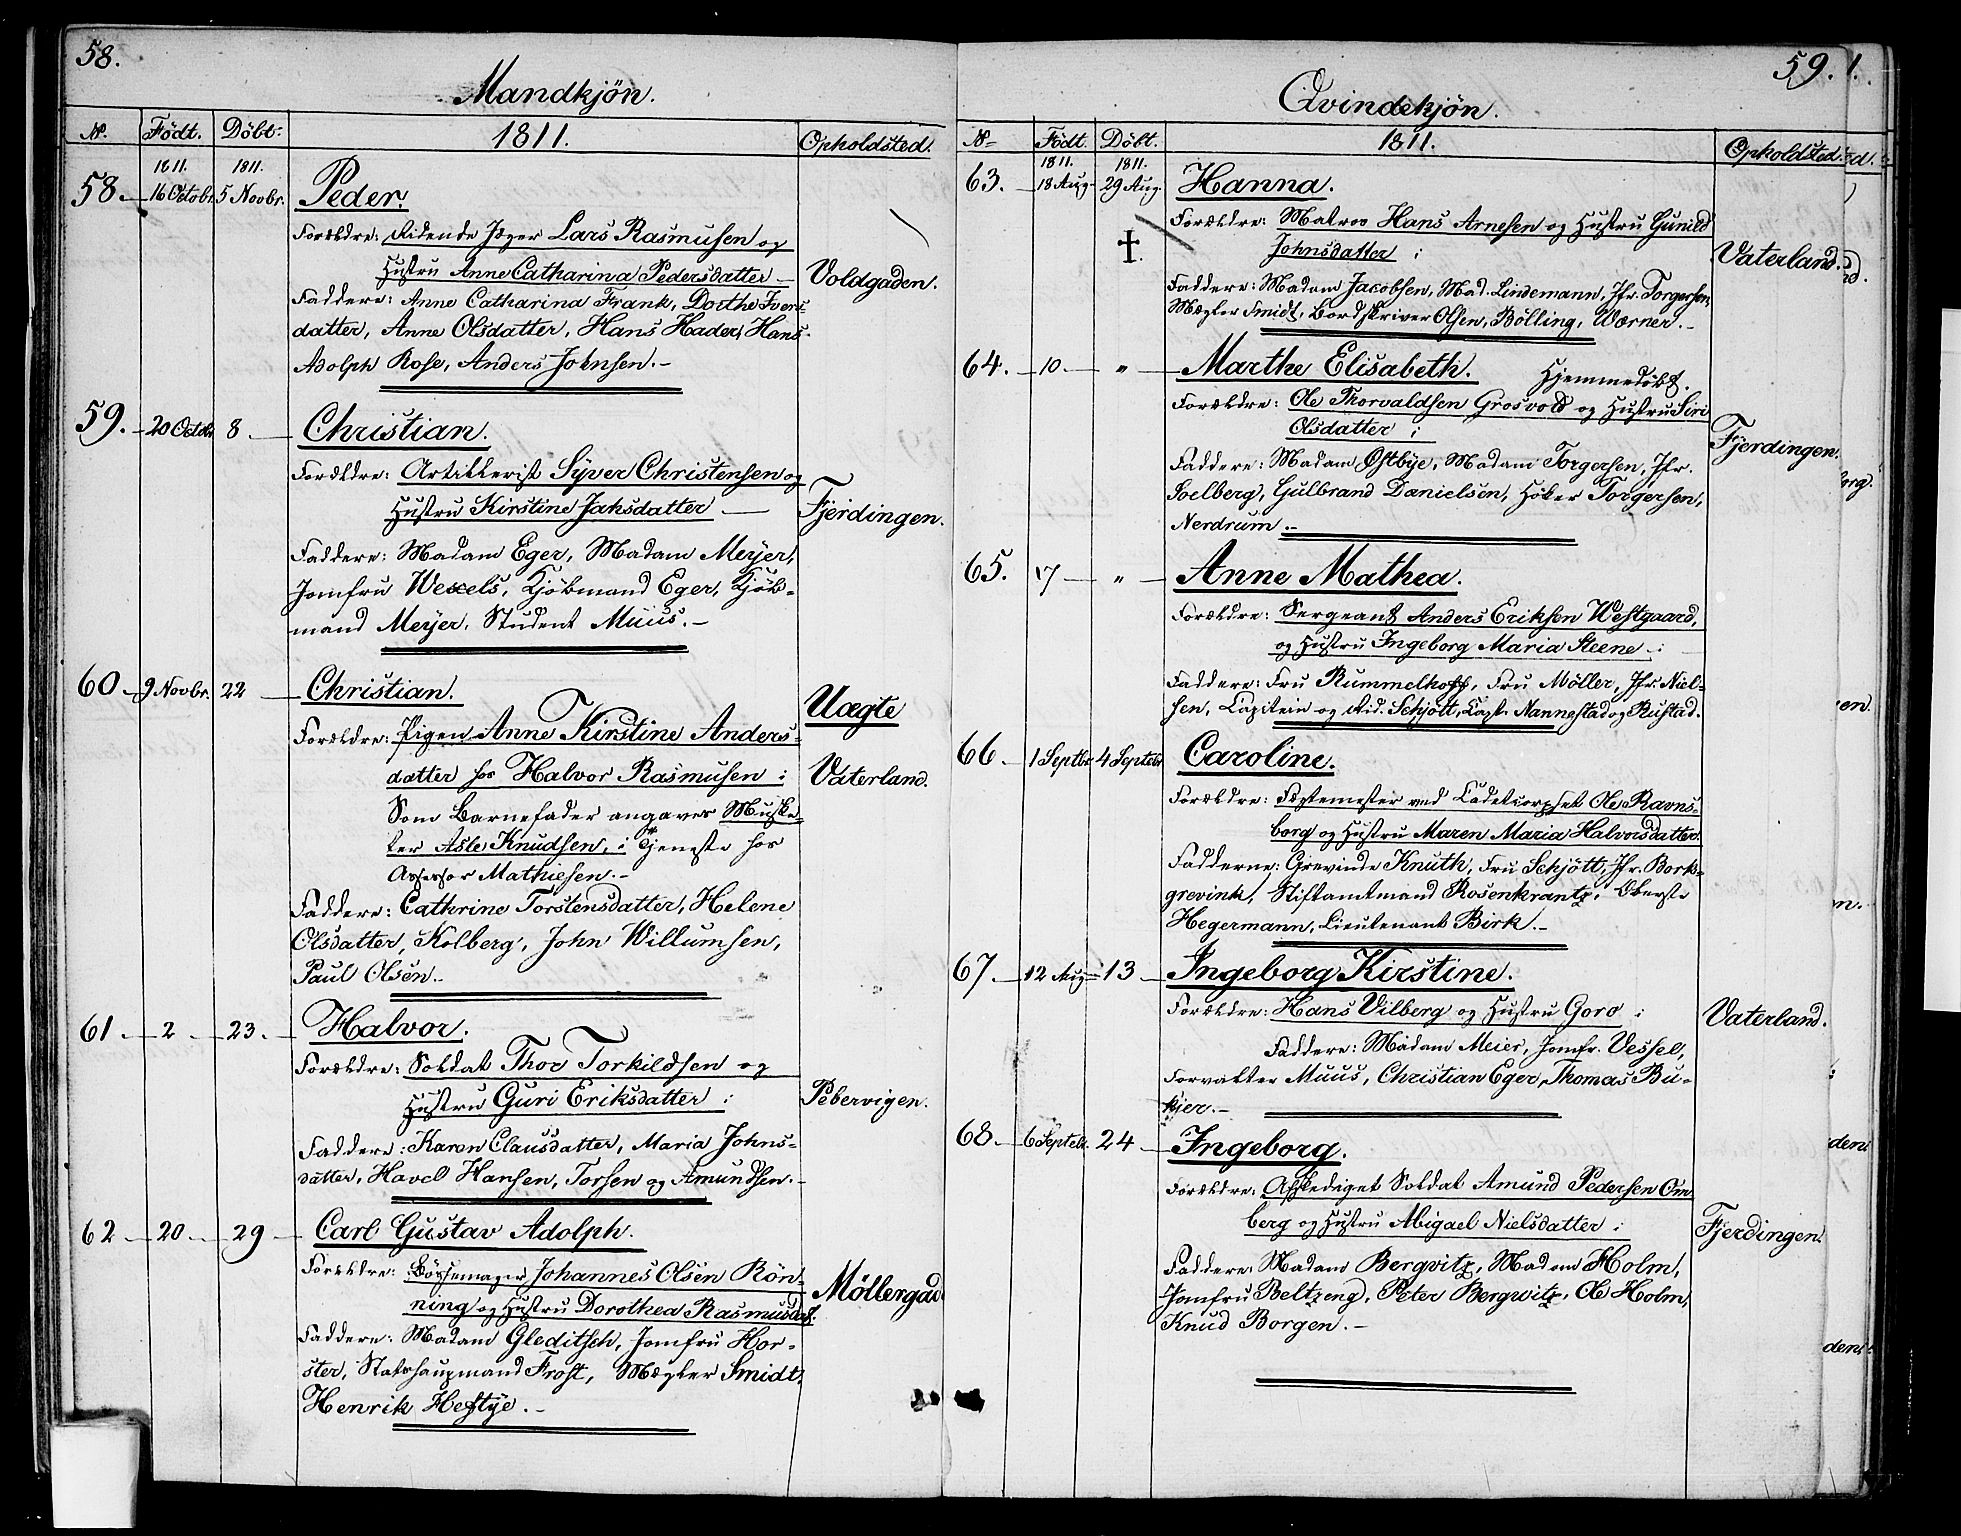 58.
Mandkjön.
No. Födt. Döbt. 1811. Opholdsted.
1811. 1811.
58. 16 Octobr. 5 Novbr. Peder.
Forældre: Ridende Jæger Lars Rasmusen og
Hustru Anne Catharina Pedersdatter
Voldgaden.
Faddere: Anne Catharina Frank, Dorthe Ivers-
datter, Anne Olsdatter, Hans Hader, Hans
Adolph Rose, Anders Johnsen.
59. 20 Octobr 8 Christian.
Forældre: Artillerist Syver Christensen og
Hustru Kirstine Jahsdatter
Fjerdingen.
Faddere: Madam Eger, Madam Meyer,
Jomfru Wexels, Kjöbmand Eger, Kjöb-
mand Meyer, Student Muus.
60 9 Novbr. 22 Christian. Uægte
Forældre: Pigen Anne Kirstine Anders-
datter hos Halvor Rasmusen i Vaterland.
Som Barnefader angaves Muske-
ter Asle Knudsen, i Tjeneste hos
Assessor Mathiesen.
Faddere: Cathrine Torstensdatter, Helene
Olsdatter, Kolberg, John Willumsen,
Paul Olsen.
61 2 23. Halvor.
Forældre: Soldat Thor Torkildsen og
Hustru Guri Eriksdatter i Pebervigen.
Faddere: Karen Clausdatter, Maria Johns-
datter, Havel Hansen, Torsen og Amundsen.
62 20 29 Carl Gustav Adolph.
Forældre: Bössemager Johannes Olsen Rön-
ning og Hustru Dorothea Rasmusdat.
Möllergad
Faddere: Madam Gleditsch, Jomfru Hor-
ster, Stadshauptmand Frost, Mægler Smidt,
Henrik Heftye.
59.
1.
Qvindekjön.
No Födt. Döbt. 1811. Opholdsted.
1811. 1811.
63. 18 Aug. 29 Aug. Hanna.
Forældre: Matros Hans Arnesen og Hustru Gunild
Johnsdatter i Vaterland.
†
Faddere: Madam Jacobsen, Mad. Lindemann, Jfr. Torgersen,
Mægler Smidt, Bordskriver Olsen, Bölling, Wærner.
64. 10 " Marthe Elisabeth. Hjemmedöbt.
Forældre: Ole Thorvaldsen Grosvold og Hustru Siri
Olsdatter i Fjerdingen.
Faddere: Madam Østbye, Madam Torgersen, Jfr.
Soelberg, Gulbrand Danielsen, Höker Torgersen,
Nerdrum.
65. 17 " Anne Mathea.
Forældre: Sergeant Anders Eriksen Westgaard,
og Hustru Ingeborg Maria Steene i
Faddere: Fru Rummelhoff, Fru Möller, Jfr. Niel-
sen, Capitein og Rid. Schjött, Capt. Nannestad og Rustad.
66 1 Septbr 4 Septbr Caroline.
Forældre: Fægtemester ved Cadetcorpset Ole Ravns-
borg og Hustru Maren Maria Halvorsdatter.
Fadderne: Grevinde Knuth, Fru Schjött, Jfr. Bork-
grevink, Stiftamtmand Rosenkrantz, Oberste
Hegermann, Lieutenant Birk.
67 12 Aug 13 Ingeborg Kirstine.
Forældre: Hans Vilberg og Hustru Goro i Vaterland.
Faddere: Madam Meier, Jomfr. Vessel,
Forvalter Muus, Christian Eger, Thomas Bu-
kjer.
68. 6 Septbr. 24 Ingeborg.
Forældre: Afskediget Soldat Amund Pedersen Om-
berg og Hustru Abigael Nielsdatter i Fjerdingen.
Faddere: Madam Bergvitz, Madam Holm,
Jomfru Beltzeng, Peter Bergwitz, Ole Holm,
Knud Borgen.